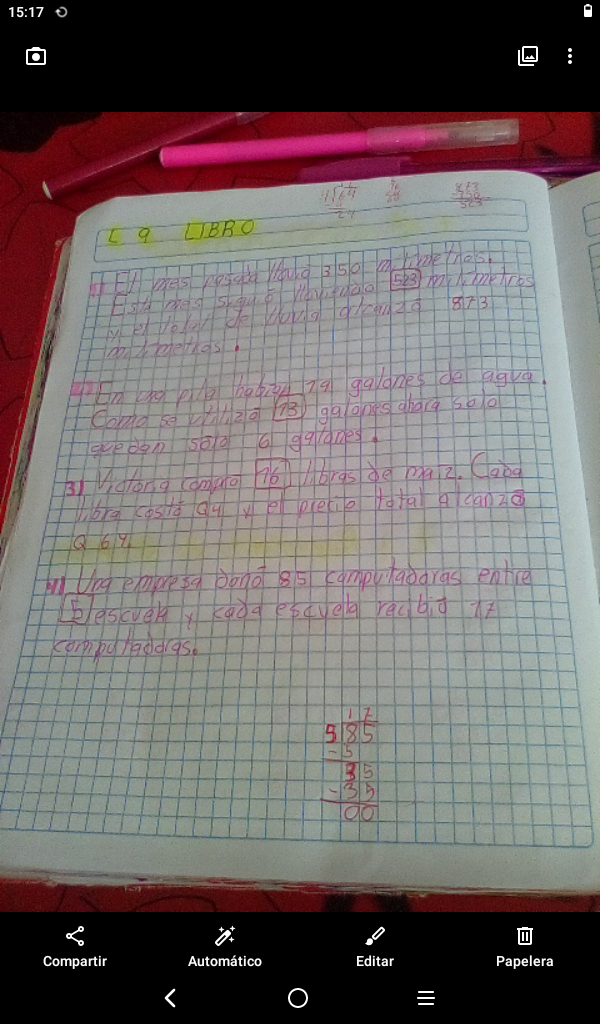 15:17
4 64
24
873
350
523
L 9 LIBRO
1) El mes pasado llovió 350 milímetros.
Este mes siguió lloviendo 523 milímetros
y el total de lluvia alcanzó 873
milimetros.
2) En una pila habían 19 galones de agua.
Como se utilizó 13 galones ahora solo
quedan solo 6 galones.
3) Victoria compró 16 libras de maíz. Cada
libra costó Q4 y el precio total alcanzó
Q 64.
4) Una empresa donó 85 computadoras entre
5 escuela y cada escuela recibió 17
computadoras.
17
5 85
-5
35
-35
00
Compartir Automático Editar Papelera